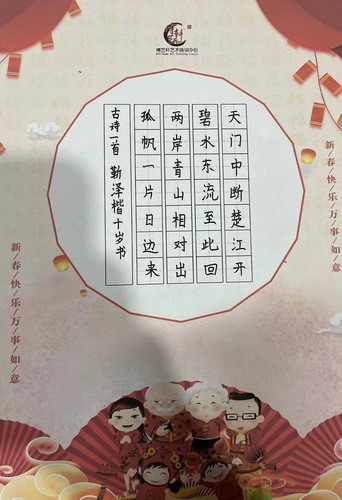 博艺轩艺术培训中心
天门中断楚江开
碧水东流至此回
两岸青山相对出
孤帆一片日边来
古诗一首 勤泽楷十岁书
新/春/快/乐/万/事/如/意
新/春/快/乐/万/事/如/意